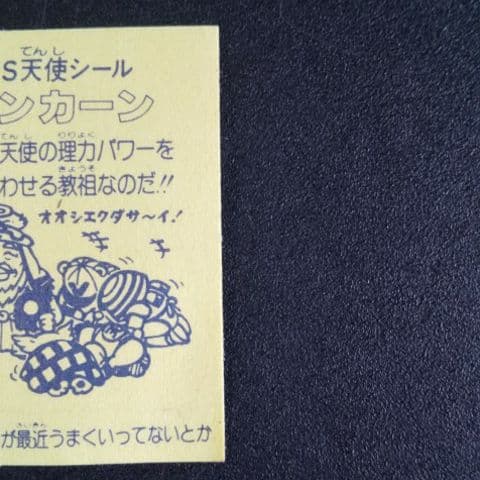 S天使シール
ンカーン
天使の理力パワーを
わせる教祖なのだ!!
オオシエクダサ〜イ!
が最近うまくいってないとか